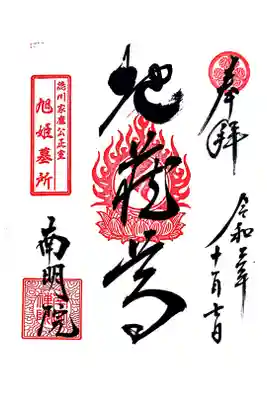 奉拝
令和三年
十一月七日
地蔵尊
徳川家康公正室
旭姫墓所
南明院